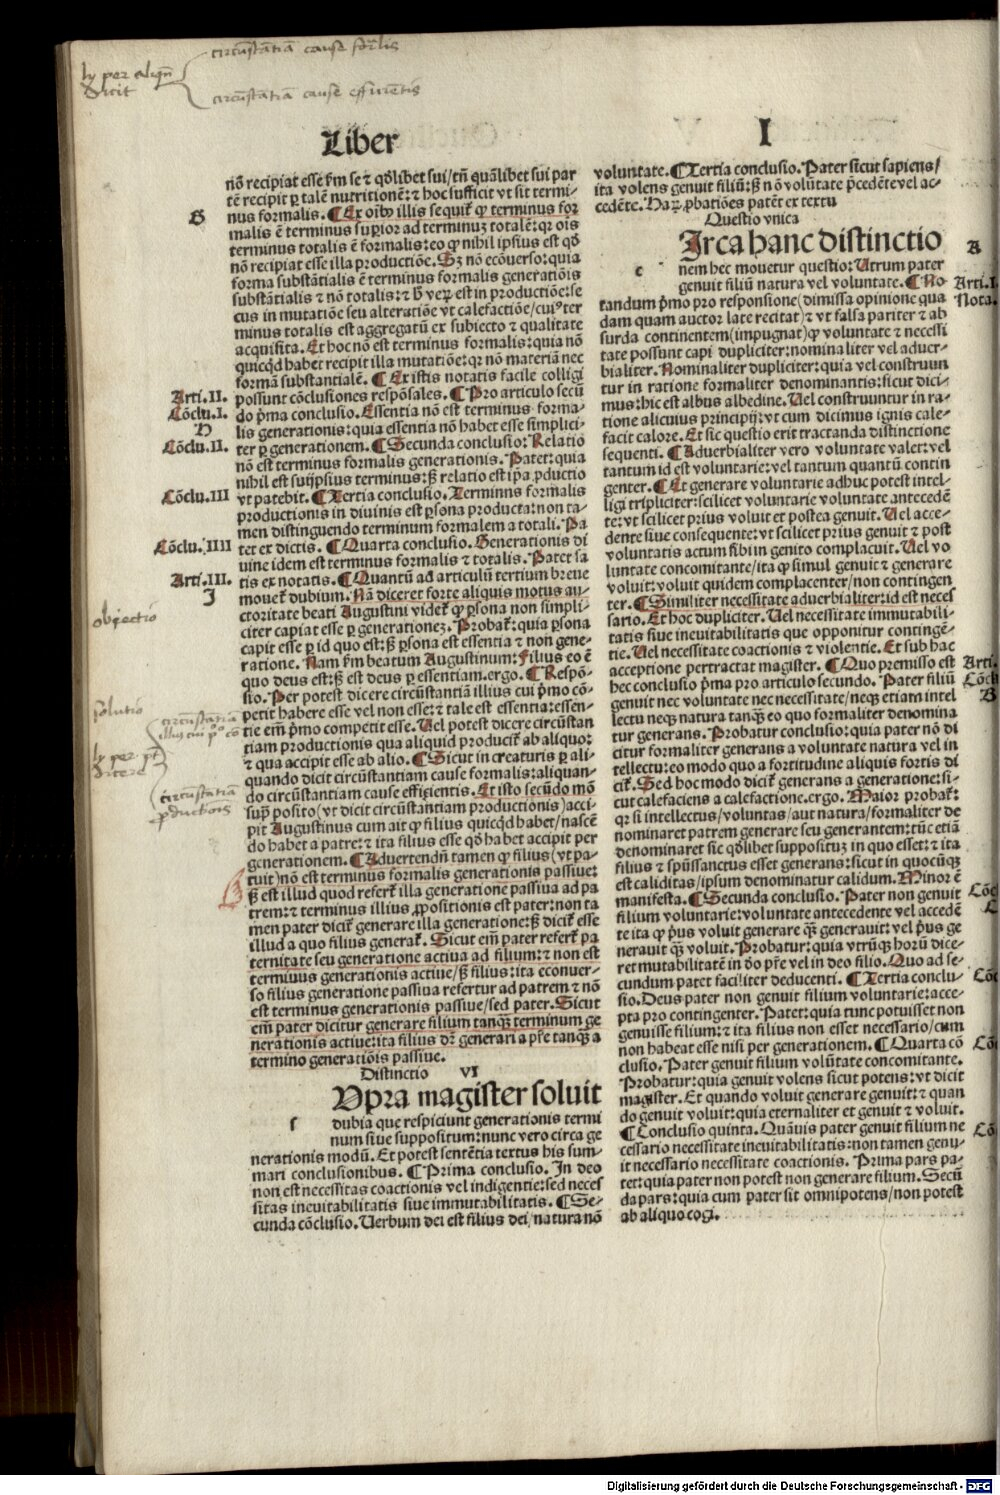 circũstãtiã cause for̃lis
ly per aliqñ
dicit
circũstãtiã cause efficiẽtis
Liber
I
nõ recipiat esse ẜm se ⁊ qđlibet sui/tñ quãlibet sui par
tẽ recipit ꝑ talẽ nutritionẽ: ⁊ hoc sufficit vt sit termi-
G
nus formalis. ¶ Ex oĩbꝰ illis sequiť ꝙ terminus for
malis ẽ terminus suꝑior ad terminuȝ totalẽ: qꝛ oĩs
terminus totalis ẽ formalis: eo ꝙ nihil ipsius est qđ
nõ recipiat esse illa productiõe. Sȝ nõ ecõuerso: quia
forma substãtialis ẽ terminus formalis generatiõis
substãtialis ⁊ nõ totalis: ⁊ ħ veꝝ est in productiõe: se
cus in mutatiõe seu alteratiõe vt calefactiõe/cuiꝰ ter
minus totalis est aggregatũ ex subiecto ⁊ qualitate
acquisita. Et hoc nõ est terminus formalis: quia nõ
quicqđ habet recipit illa mutatiõe: qꝛ nõ materiã nec
formã substantialẽ. ¶ Ex istis notatis facile colligi
Arti. II.
possunt cõclusiones respõsales. ¶ Pro articulo secũ
Cõclu. I.
do p̃ma conclusio. Essentia nõ est terminus forma-
H
lis generationis: quia essentia nõ habet esse simplici-
Cõclu. II.
ter ꝑ generationem. ¶ Secunda conclusio: Relatio
nõ est terminus formalis generationis. Patet: quia
nihil est suijpsius terminus: ẜȝ relatio est ip̃a ꝓductio
Cõclu. III
vt patebit. ¶ Tertia conclusio. Terminus formalis
productionis in diuinis est ꝑsona producta: non ta-
men distinguendo terminum formalem a totali. Pa
Cõclu. IIII
tet ex dictis. ¶ Quarta conclusio. Generationis di
uine idem est terminus formalis ⁊ totalis. Patet sa
Arti. III.
tis ex notatis. ¶ Quantũ ad articulũ tertium breue
I
moueť dubium. Nã diceret forte aliquis motus au-
objectio
ctoritate beati Augustini videť ꝙ ꝑsona non simpli-
citer capiat esse ꝑ generationeȝ. Probať: quia ꝑsona
capit esse ꝑ id quo est: ẜȝ ꝑsona est essentia ⁊ non gene-
ratione. Nam ẜm beatum Augustinum: Filius eo ẽ
quo deus est: ẜȝ est deus ꝑ essentiam. ergo. ¶ Respõ-
solutio
sio. Per potest dicere circũstantiã illius cui p̃mo cõ-
circũstãtiã
illiꝰ cui pº cõ
petit habere esse vel non esse: ⁊ tale est essentia: essen-
tie em̃ p̃mo competit esse. Vel potest dicere circũstan
ly per pt̃
dicere
tiam productionis qua aliquid produciť ab aliquo:
⁊ qua accipit esse ab alio. ¶ Sicut in creaturis ꝑ ali-
quando dicit circũstantiam cause formalis: aliquan-
circũstãtiã
ꝓductiõis
do circũstantiam cause effiẽientis. Et isto secũdo mõ
supꝑ posito (vt dicit circũstantiam productionis) acci-
pit Augustinus cum ait ꝙ filius quicqđ habet/nascẽ
do habet a patre: ⁊ ita filius esse qđ habet accipit per
generationem. ¶ Aduertendũ tamen ꝙ filius (vt pa-
tuit) nõ est terminus formalis generationis passiue:
ẜȝ est illud quod referť illa generatione passiua ad pa
trem: ⁊ terminus illius ꝓpositionis est pater: non ta
men pater diciť generare illa generatione: ẜȝ diciť esse
illud a quo filius generať. Sicut em̃ pater referť pa
ternitate seu generatione actiua ad filium: ⁊ non est
terminus generationis actiue/ẜȝ filius: ita econuer-
so filius generatione passiua refertur ad patrem ⁊ nõ
est terminus generationis passiue/sed pater. Sicut
em̃ pater dicitur generare filium tanqȝ terminum ge
nerationis actiue: ita filius dr̃ generari a pr̃e tanqȝ a
termino generatiõis passiue.
Distinctio VI
Vpra magister soluit
ſ
dubia que respiciunt generationis termi
num siue suppositum: nunc vero circa ge
nerationis modũ. Et potest sentẽtia textus his sum-
mari conclusionibus. ¶ Prima conclusio. In deo
non est necessitas coactionis vel indigentie: sed neces
sitas ineuitabilitatis siue immutabilitatis. ¶ Se-
cunda cõclusio. Verbum dei est filius dei/natura nõ
voluntate. ¶ Tertia conclusio. Pater sicut sapiens/
ita volens genuit filiũ: ẜȝ nõ volũtate p̃cedẽte vel ac-
cedẽte. Haꝝ ꝓbatiões patẽt ex textu
Questio vnica
A
Irca hanc distinctio
c
nem hec mouetur questio: Utrum pater
Arti. I.
genuit filiũ natura vel voluntate. ¶ No-
Nota.
tandum p̃mo pro responsione (dimissa opinione qua
dam quam auctor late recitat) ⁊ vt falsa pariter ⁊ ab
surda continentem (impugnat) ꝙ voluntate ⁊ necessi
tate possunt capi dupliciter: nominaliter vel aduer-
bialiter. Nominaliter dupliciter: quia vel construun
tur in ratione formaliter denominantis: sicut dici-
mus: hic est albus albedine. Vel construuntur in ra-
tione alicuius principij: vt cum dicimus ignis cale-
facit calore. Et sic questio erit tractanda distinctione
sequenti. ¶ Aduerbialiter vero voluntate valet: vel
tantum id est voluntarie: vel tantum quantũ contin
genter. ¶ Et generare voluntarie adhuc potest intel-
ligi tripliciter: scilicet voluntarie voluntate antecedẽ
te: vt scilicet prius voluit et postea genuit. Vel acce-
dente siue consequente: vt scilicet prius genuit ⁊ post
voluntatis actum sibi in genito complacuit. Vel vo
luntate concomitante/ita ꝙ simul genuit ⁊ generare
voluit: voluit quidem complacenter/non contingen
ter. ¶ Similiter necessitate aduerbialiter: id est neces
sario. Et hoc dupliciter. Vel necessitate immutabili-
tatis siue ineuitabilitatis que opponitur contingẽ-
tie. Vel necessitate coactionis ⁊ violentie. Et sub hac
Arti.
acceptione pertractat magister. ¶ Quo premisso est
hec conclusio p̃ma pro articulo secundo. Pater filiũ
B
genuit nec voluntate nec necessitate/neqȝ etiam intel
lectu neqȝ natura tanqȝ eo quo formaliter denomina
tur generans. Probatur conclusio: quia pater nõ di
citur formaliter generans a voluntate natura vel in
tellectu: eo modo quo a fortitudine aliquis fortis di
ciť. Sed hoc modo diciť generans a generatione: si-
cut calefaciens a calefactione. ergo. Maior probať:
qꝛ si intellectus/voluntas/aut natura/formaliter de
nominaret patrem generare seu generantem: tũc etiã
denominaret sic qđlibet suppositum in quo esset: ⁊ ita
filius ⁊ spũssanctus esset generans: sicut in quocũqȝ
est caliditas/ipsum denominatur calidum. Minor ẽ
manifesta. ¶ Secunda conclusio. Pater non genuit
filium voluntarie: voluntate antecedente vel accedẽ
te ita ꝙ p̃us voluit generare qȝ generauit: vel p̃us ge
nerauit qȝ voluit. Probatur: quia vtrũqȝ horũ dice-
ret mutabilitatẽ in đo pr̃e vel in deo filio. Quo ad se-
cundum patet faciliter deducenti. ¶ Tertia conclu-
sio. Deus pater non genuit filium voluntarie: acce-
pta pro contingenter. Patet: quia tunc potuisset non
genuisse filium: ⁊ ita filius non esset necessario/cum
non habeat esse nisi per generationem. ¶ Quarta cõ
clusio. Pater genuit filium volũtate concomitante.
Probatur: quia genuit volens sicut potens: vt dicit
magister. Et quando voluit generare genuit: ⁊ quan
do genuit voluit: quia eternaliter et genuit ⁊ voluit.
¶ Conclusio quinta. Quãuis pater genuit filium ne
cessario necessitate ineuitabilitatis: non tamen genu-
it necessario necessitate coactionis. Prima pars pa-
tet: quia pater non potest non generare filium. Secũ
da pars: quia cum pater sit omnipotens/non potest
ab aliquo cogi.
Digitalisierung gefördert durch die Deutsche Forschungsgemeinschaft - DFG